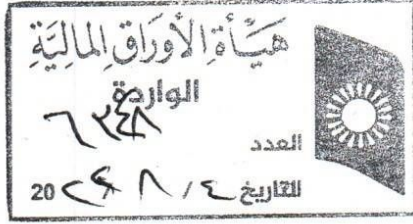 هَيْأَةِ الأَوْرَاقِ المَالِيَّةِ
الواردة
العدد ٦٣٤٨
التاريخ ٤ / ٨ 20٢٤